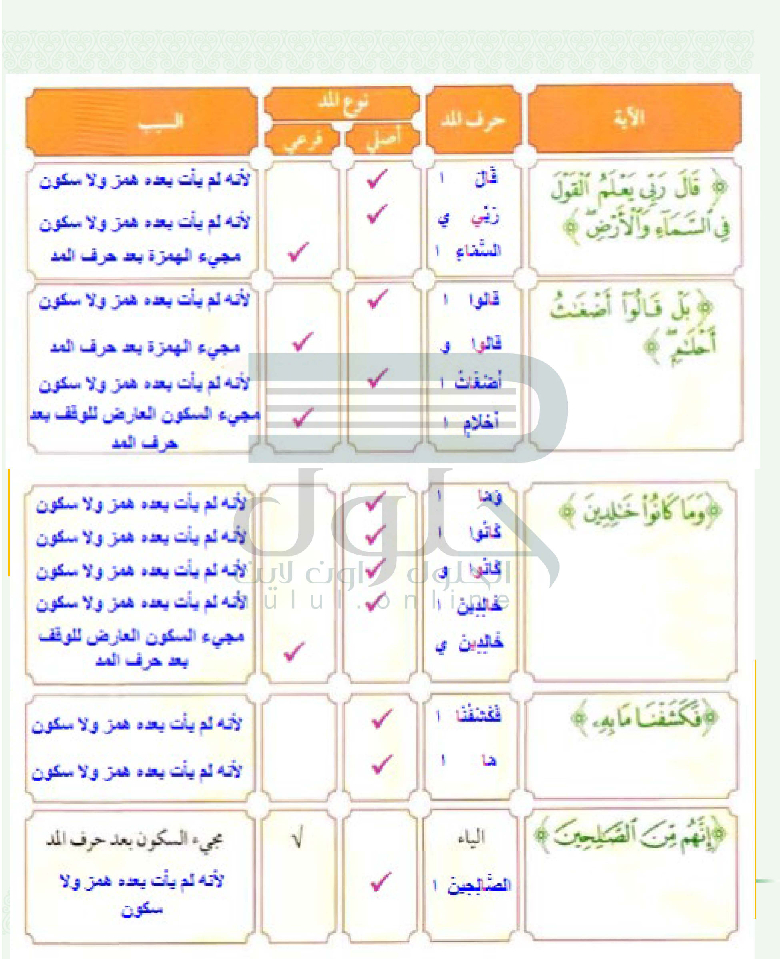 الآية حرف المد نوع المد السبب
أصلي فرعي
﴿ قَالَ رَبِّي يَعْلَمُ الْقَوْلَ
فِي السَّمَاءِ وَالْأَرْضِ ﴾
قَالَ ا ✓ لأنه لم يأت بعده همز ولا سكون
رَبِّي ي ✓ لأنه لم يأت بعده همز ولا سكون
السَّمَاءِ ا ✓ مجيء الهمزة بعد حرف المد
﴿ بَلْ قَالُوٓا۟ أَضْغَٰثُ
أَحْلَٰمٍ ﴾
قالوا ا ✓ لأنه لم يأت بعده همز ولا سكون
قالوا و ✓ مجيء الهمزة بعد حرف المد
أضْغَاثُ ا ✓ لأنه لم يأت بعده همز ولا سكون
أحْلَامٍ ا ✓ مجيء السكون العارض للوقف بعد
حرف المد
﴿ وَمَا كَانُوا۟ خَٰلِدِينَ ﴾
وَمَا ا ✓ لأنه لم يأت بعده همز ولا سكون
كَانُوا ا ✓ لأنه لم يأت بعده همز ولا سكون
كَانُوا و ✓ لأنه لم يأت بعده همز ولا سكون
خَالِدِينَ ا ✓ لأنه لم يأت بعده همز ولا سكون
خَالِدِينَ ي ✓ مجيء السكون العارض للوقف
بعد حرف المد
﴿ فَكَشَفْنَا مَا بِهِۦ ﴾
فَكَشَفْنَا ا ✓ لأنه لم يأت بعده همز ولا سكون
مَا ا ✓ لأنه لم يأت بعده همز ولا سكون
﴿ إِنَّهُم مِّنَ ٱلصَّٰلِحِينَ ﴾
الياء √ مجيء السكون بعد حرف المد
الصَّالِحِينَ ا ✓ لأنه لم يأت بعده همز ولا
سكون
حلول
الحلول اون لاين
hulul.online